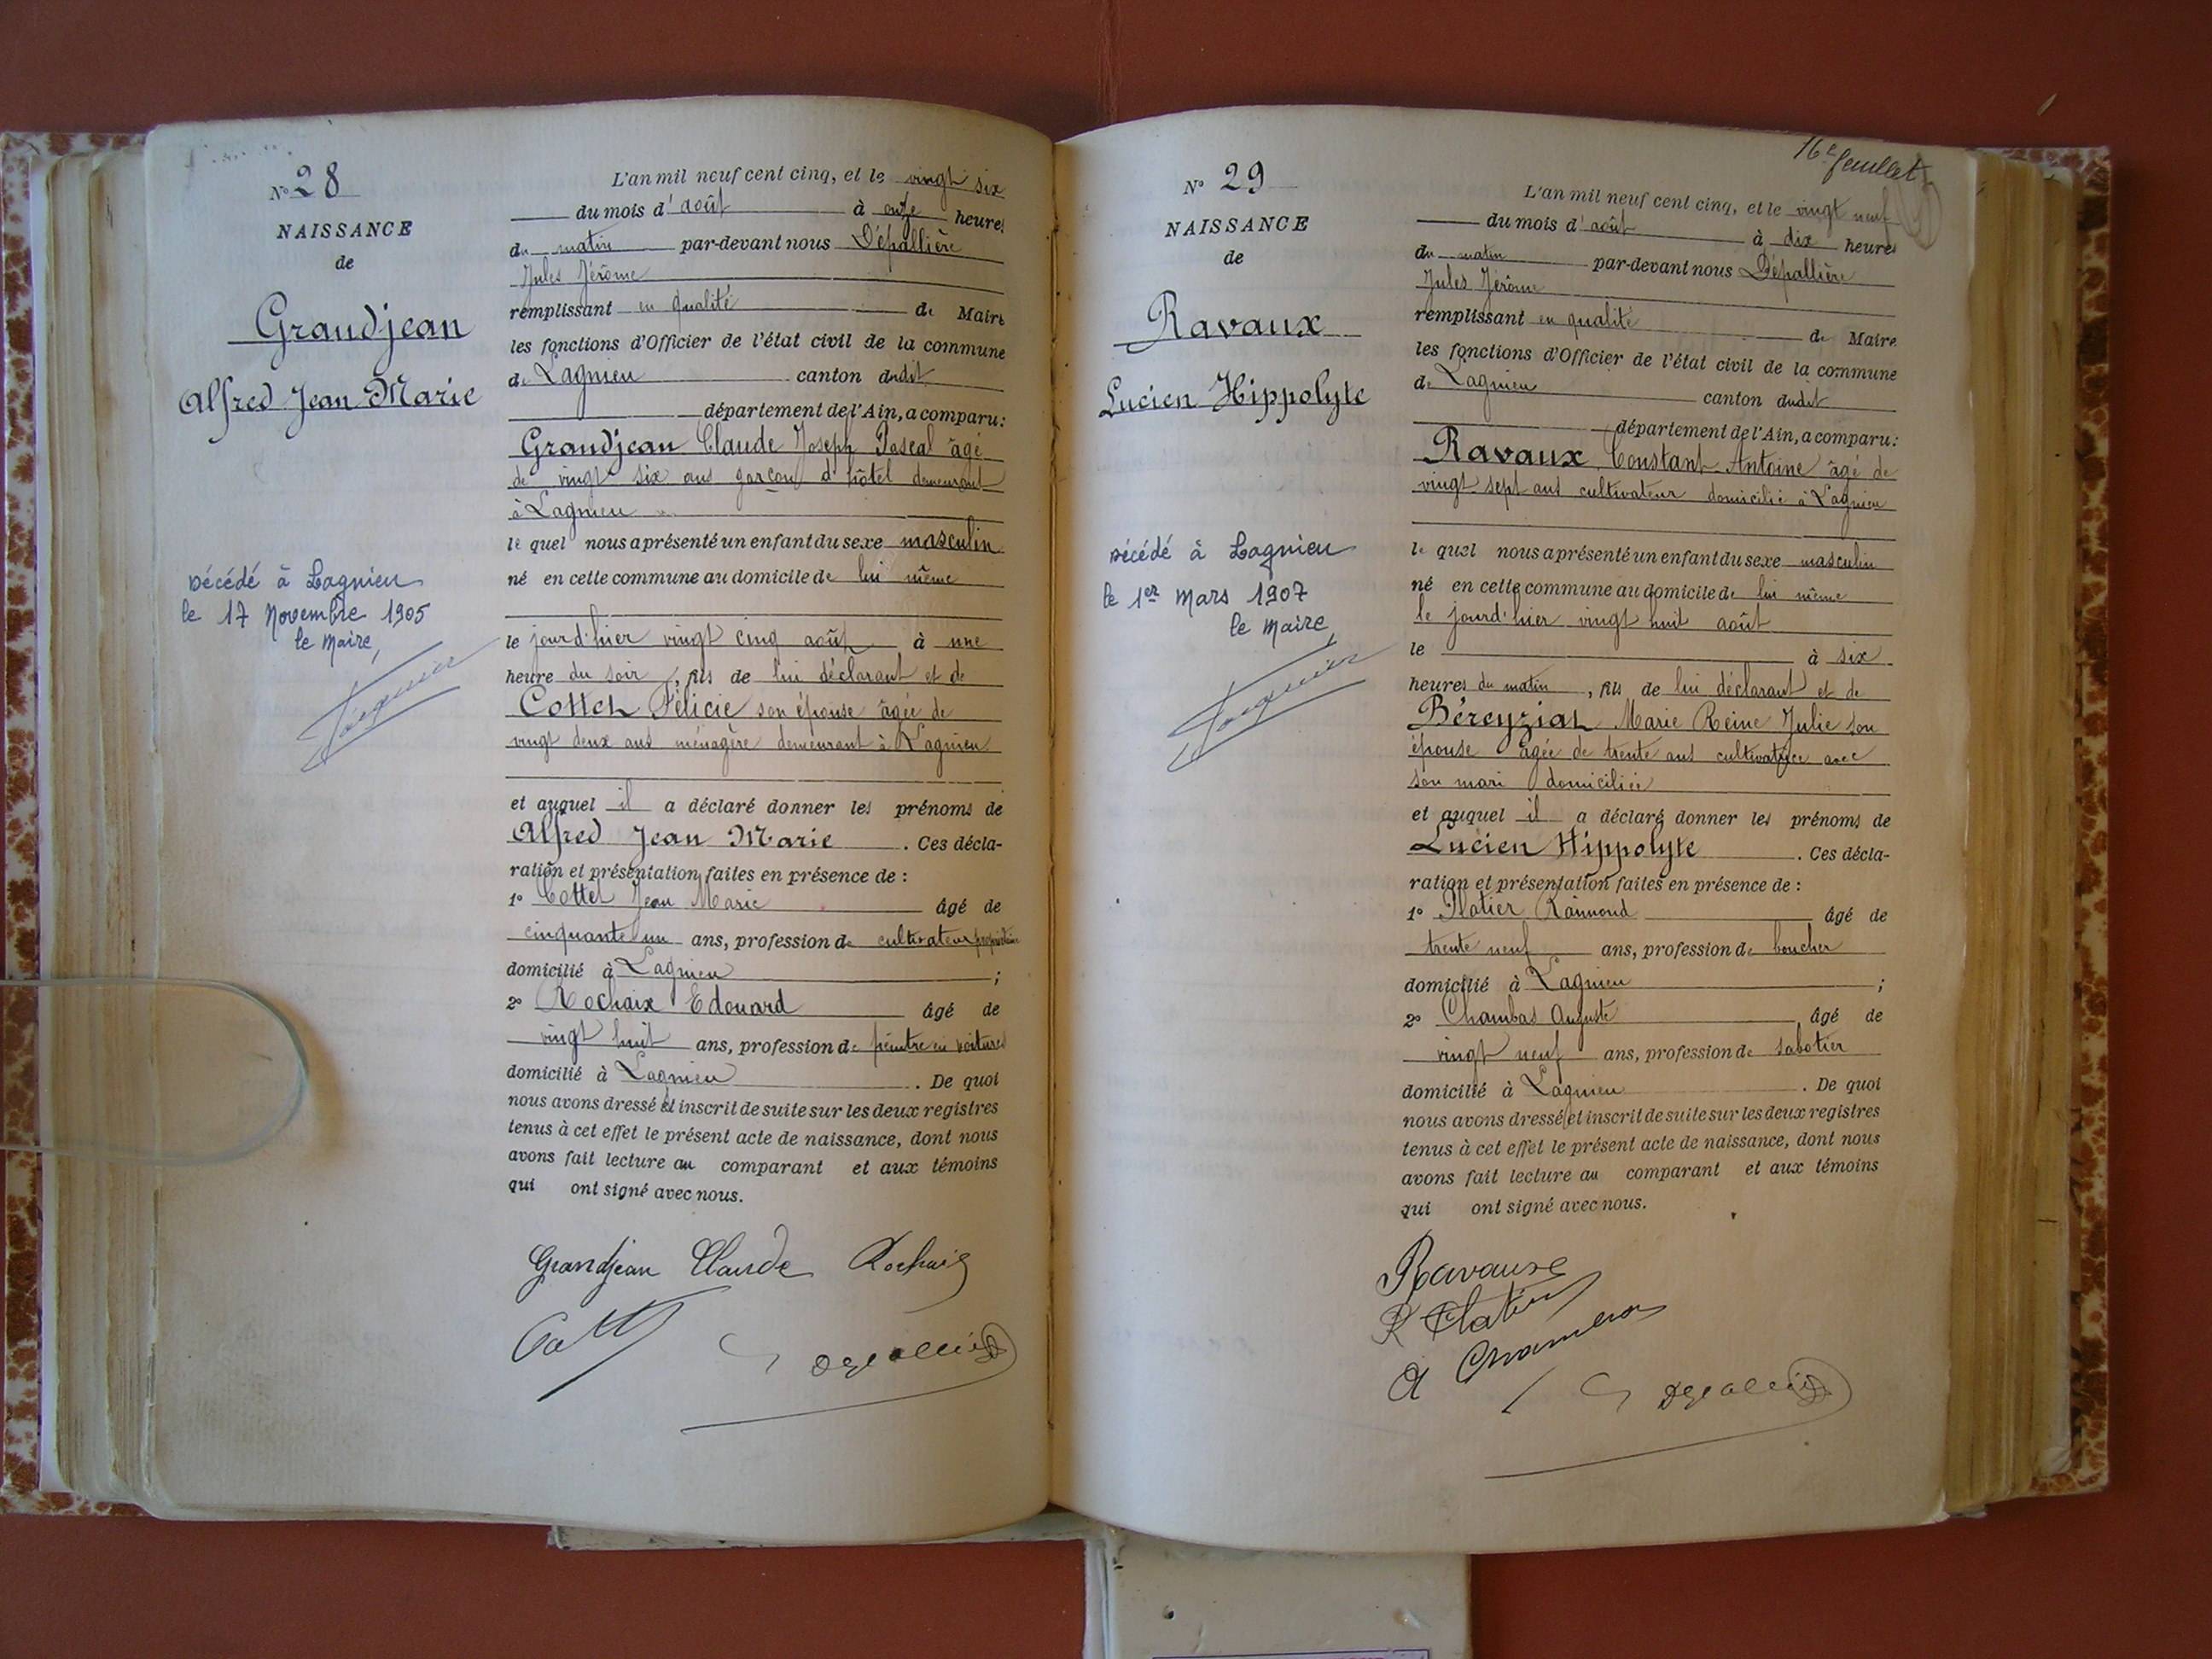 N° 28
NAISSANCE
de
Grandjean
Alfred Jean Marie
Décédé à Lagnieu
le 17 Novembre 1905
le Maire,
L'an mil neuf cent cinq, et le vingt six
du mois d'août à onze heures
du matin par-devant nous Dépallière
Jules Jérôme
remplissant en qualité de Maire
les fonctions d'Officier de l'état civil de la commune
de Lagnieu canton dudit
département de l'Ain, a comparu:
Grandjean Claude Joseph Pascal âgé
de vingt six ans garçon d'hôtel demeurant
à Lagnieu
le quel nous a présenté un enfant du sexe masculin
né en cette commune au domicile de lui même
le jourd'hier vingt cinq août à une
heure du soir, fils de lui déclarant et de
Cottet Félicie son épouse âgée de
vingt deux ans ménagère demeurant à Lagnieu
et auquel il a déclaré donner les prénoms de
Alfred Jean Marie. Ces décla-
ration et présentation faites en présence de :
1° Cottet Jean Marie âgé de
cinquante un ans, profession de cultivateur propriétaire
domicilié à Lagnieu ;
2° Rochaix Edouard âgé de
vingt huit ans, profession de peintre en voitures
domicilié à Lagnieu. De quoi
nous avons dressé et inscrit de suite sur les deux registres
tenus à cet effet le présent acte de naissance, dont nous
avons fait lecture au comparant et aux témoins
qui ont signé avec nous.
Grandjean Claude Rochaix
16e feuillet
N° 29
NAISSANCE
de
Ravaux
Lucien Hippolyte
Décédé à Lagnieu
le 1er Mars 1907
le Maire,
L'an mil neuf cent cinq, et le vingt neuf
du mois d'août à dix heures
du matin par-devant nous Dépallière
Jules Jérôme
remplissant en qualité de Maire
les fonctions d'Officier de l'état civil de la commune
de Lagnieu canton dudit
département de l'Ain, a comparu:
Ravaux Constant Antoine âgé de
vingt sept ans cultivateur domicilié à Lagnieu
le quel nous a présenté un enfant du sexe masculin
né en cette commune au domicile de lui même
le jourd'hier vingt huit août
le à six
heures du matin, fils de lui déclarant et de
Béreyziat Marie Reine Julie son
épouse âgée de trente ans cultivatrice avec
son mari domiciliée
et auquel il a déclaré donner les prénoms de
Lucien Hippolyte. Ces décla-
ration et présentation faites en présence de :
1° Platier Raimond âgé de
trente neuf ans, profession de boucher
domicilié à Lagnieu ;
2° Chambas Auguste âgé de
vingt neuf ans, profession de sabotier
domicilié à Lagnieu. De quoi
nous avons dressé et inscrit de suite sur les deux registres
tenus à cet effet le présent acte de naissance, dont nous
avons fait lecture au comparant et aux témoins
qui ont signé avec nous.
Ravaux
R Platier